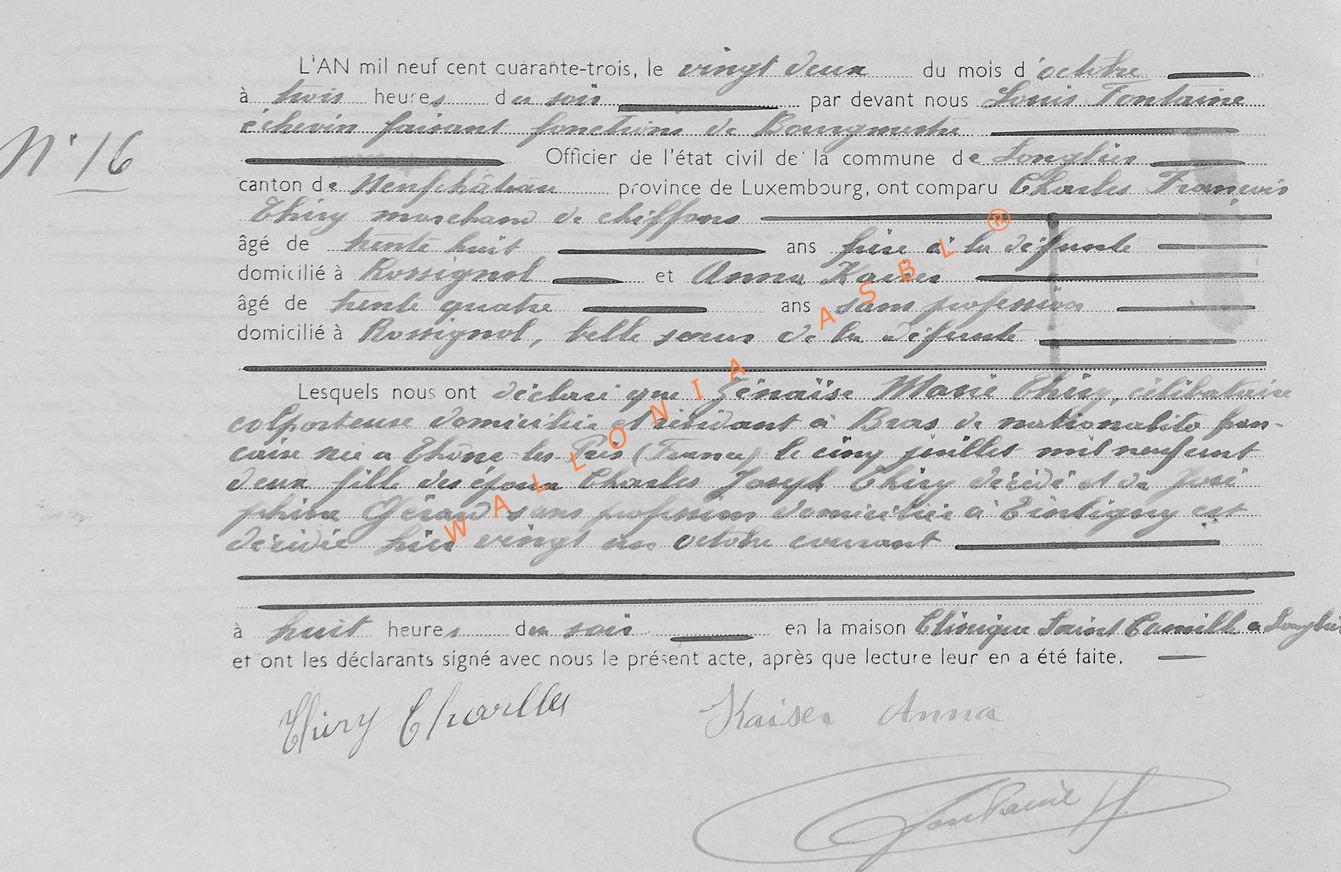 L'AN mil neuf cent quarante-trois, le vingt deux du mois d'octobre
à trois heures du soir par devant nous Louis Fontaine
échevin faisant fonctions de Bourgmestre
N° 16
Officier de l'état civil de la commune de Longlier
canton de Neufchâteau province de Luxembourg, ont comparu Charles François
Thiry marchand de chiffons
âgé de trente huit ans frère à la défunte
domicilié à Rossignol et Anna Kaiser
âgé de trente quatre ans sans profession
domicilié à Rossignol, belle soeur de la défunte
Lesquels nous ont déclaré que Génaïse Marie Thiry, célibataire
colporteuse domiciliée et résidant à Bras de nationalité fran-
çaise née à Thône-les-Prés (France) le cinq juillet mil neuf cent
deux fille des époux Charles Joseph Thiry décédé et de José
phine Gérard sans profession domiciliée à Tintigny est
décédée hier vingt un octobre courant
à huit heures du soir en la maison Clinique Saint Camille à Longlier
et ont les déclarants signé avec nous le présent acte, après que lecture leur en a été faite.
Thiry Charles Kaiser Anna
Fontaine
WALLONIA ASBL ®